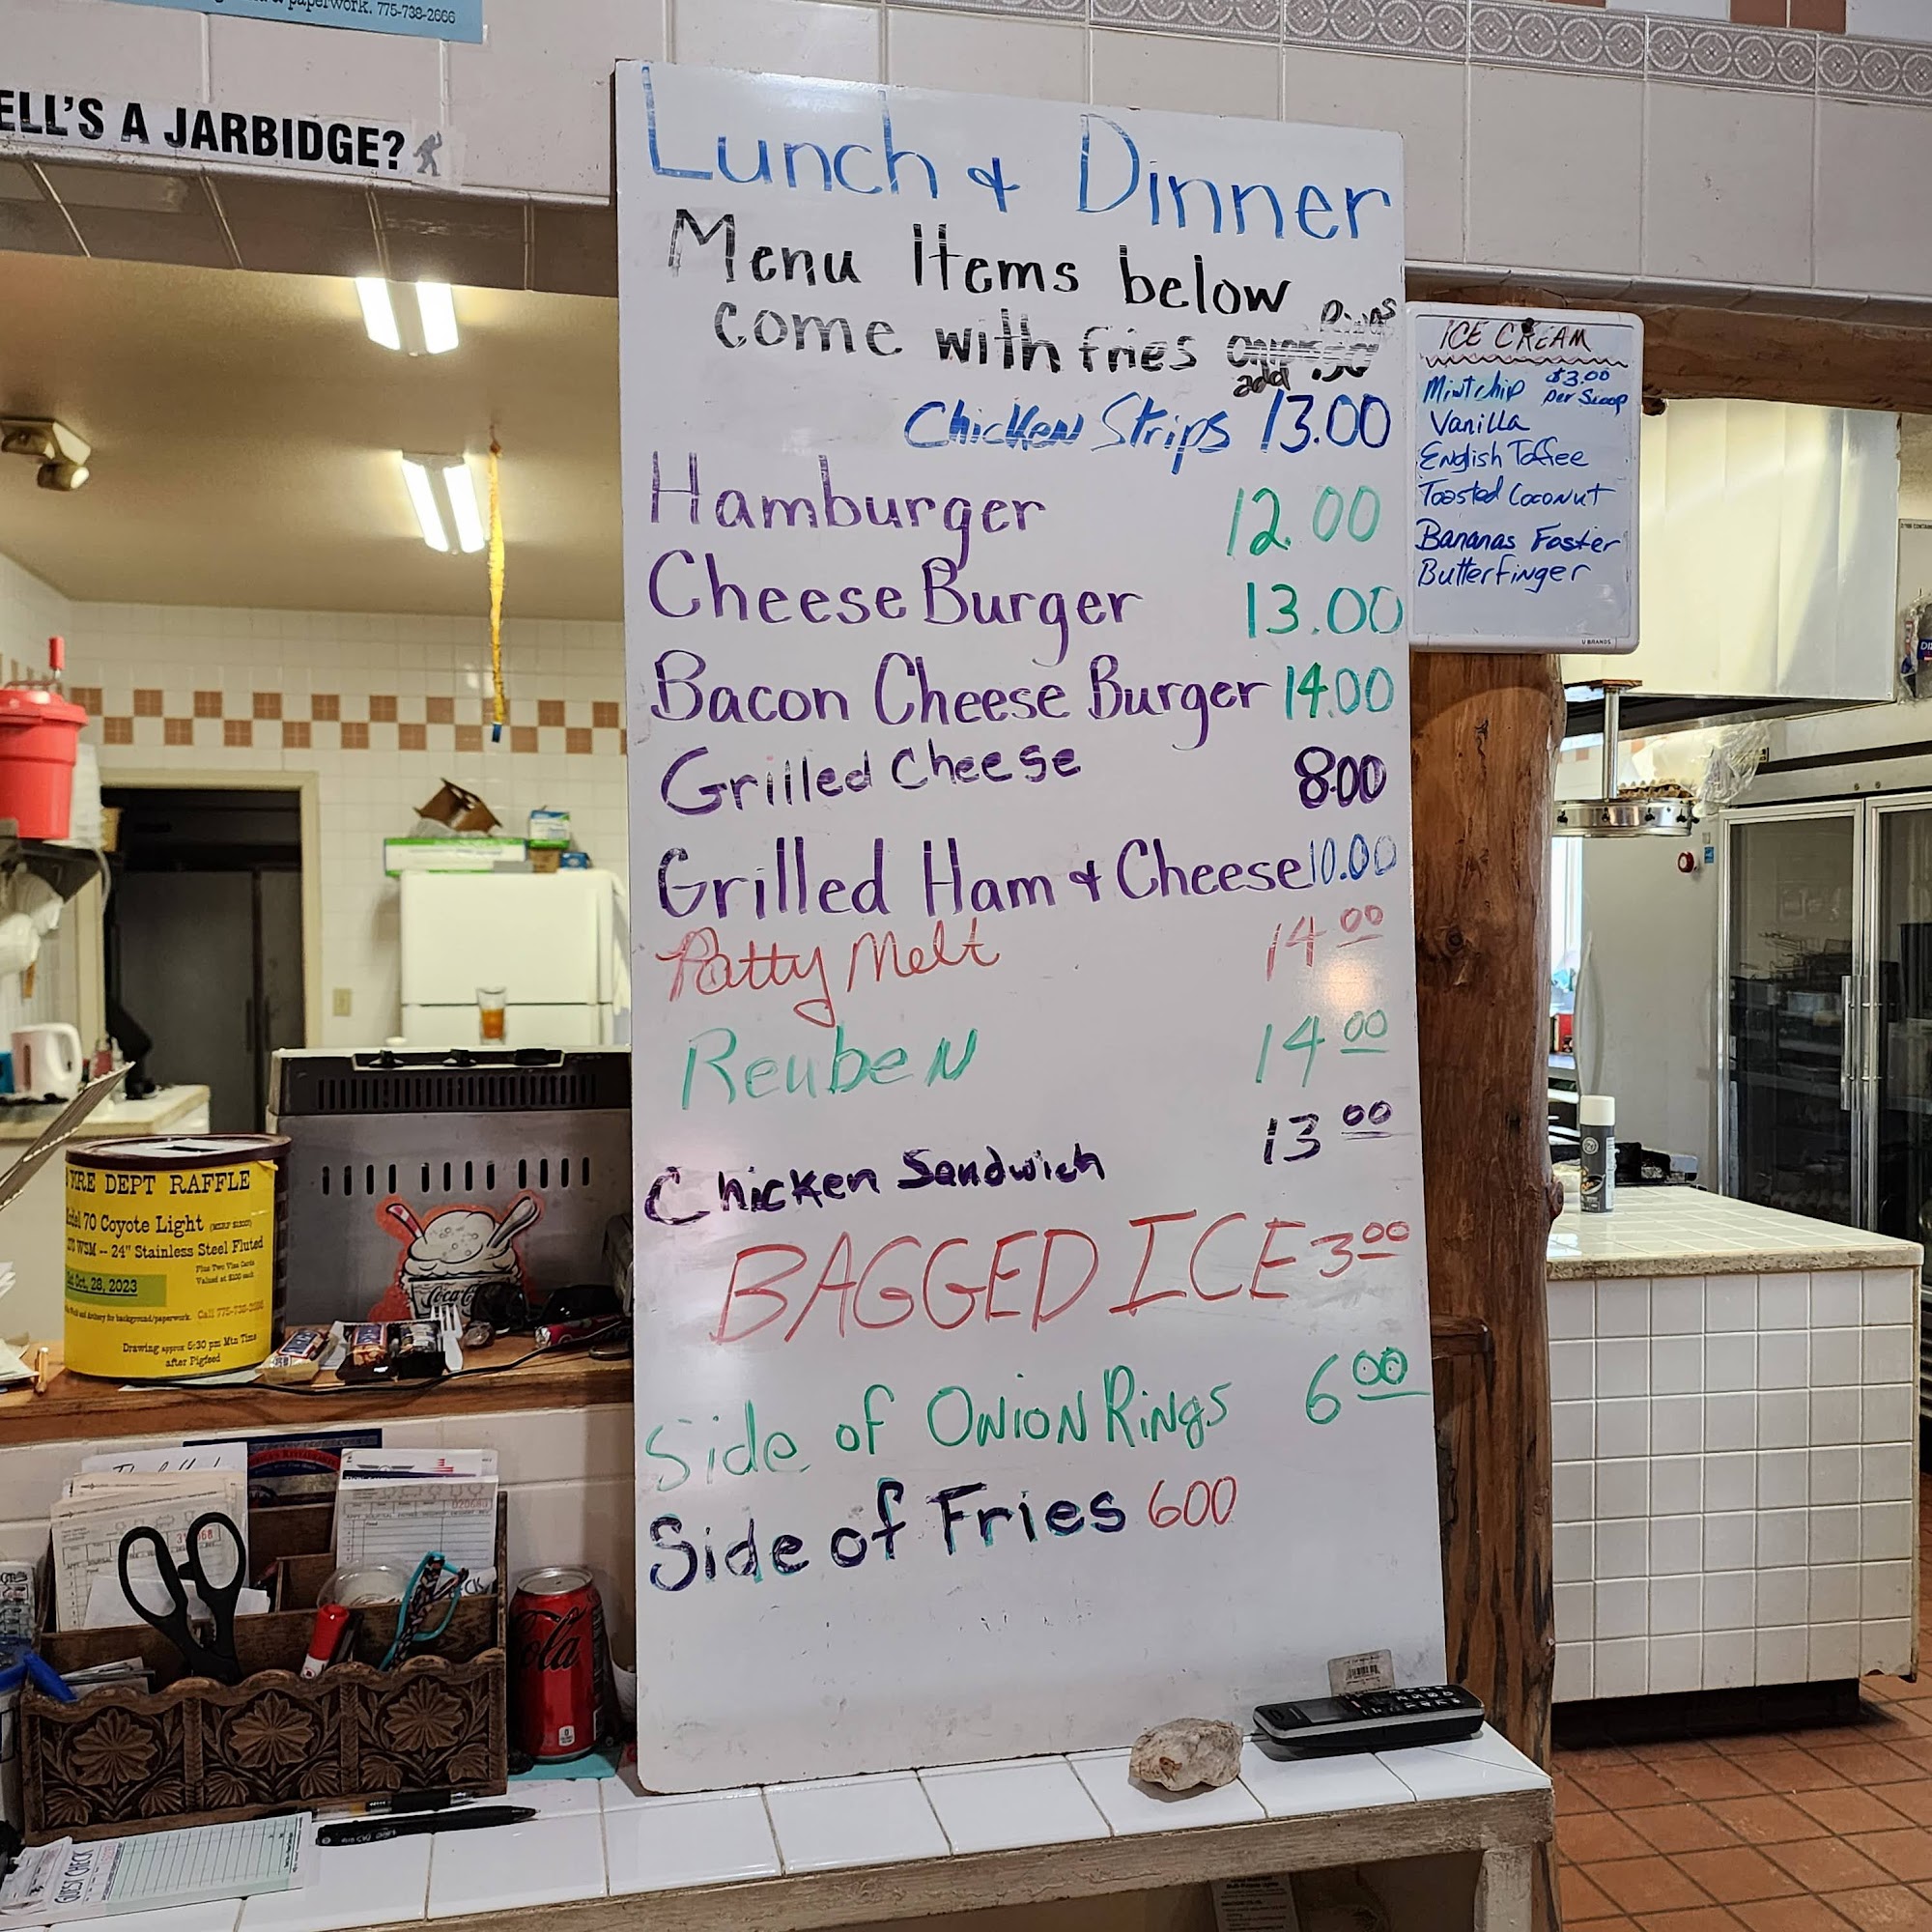 paperwork. 775-738-2666
ELL'S A JARBIDGE?
Lunch & Dinner
Menu Items below
come with fries
Rings
add .50
Chicken Strips 13.00
Hamburger 12.00
Cheese Burger 13.00
Bacon Cheese Burger 14.00
Grilled Cheese 8.00
Grilled Ham & Cheese 10.00
Patty Melt 14 00
Reuben 14 00
Chicken Sandwich 13 00
BAGGED ICE 3 00
Side of Onion Rings 6 00
Side of Fries 600
ICE CREAM
Mint chip $3.00
per Scoop
Vanilla
English Toffee
Toasted Coconut
Bananas Foster
Butterfinger
U BRANDS
DEPT RAFFLE
70 Coyote Light
WSM -- 24" Stainless Steel Fluted
Plus Two Visa Cards
Valued at $100 each
Oct, 28, 2023
for background/paperwork. Call 775-738-2666
Drawing approx 6:30 pm Mtn Time
after Pigfeed
Coca-Co
ola
020680
GUEST CHECK